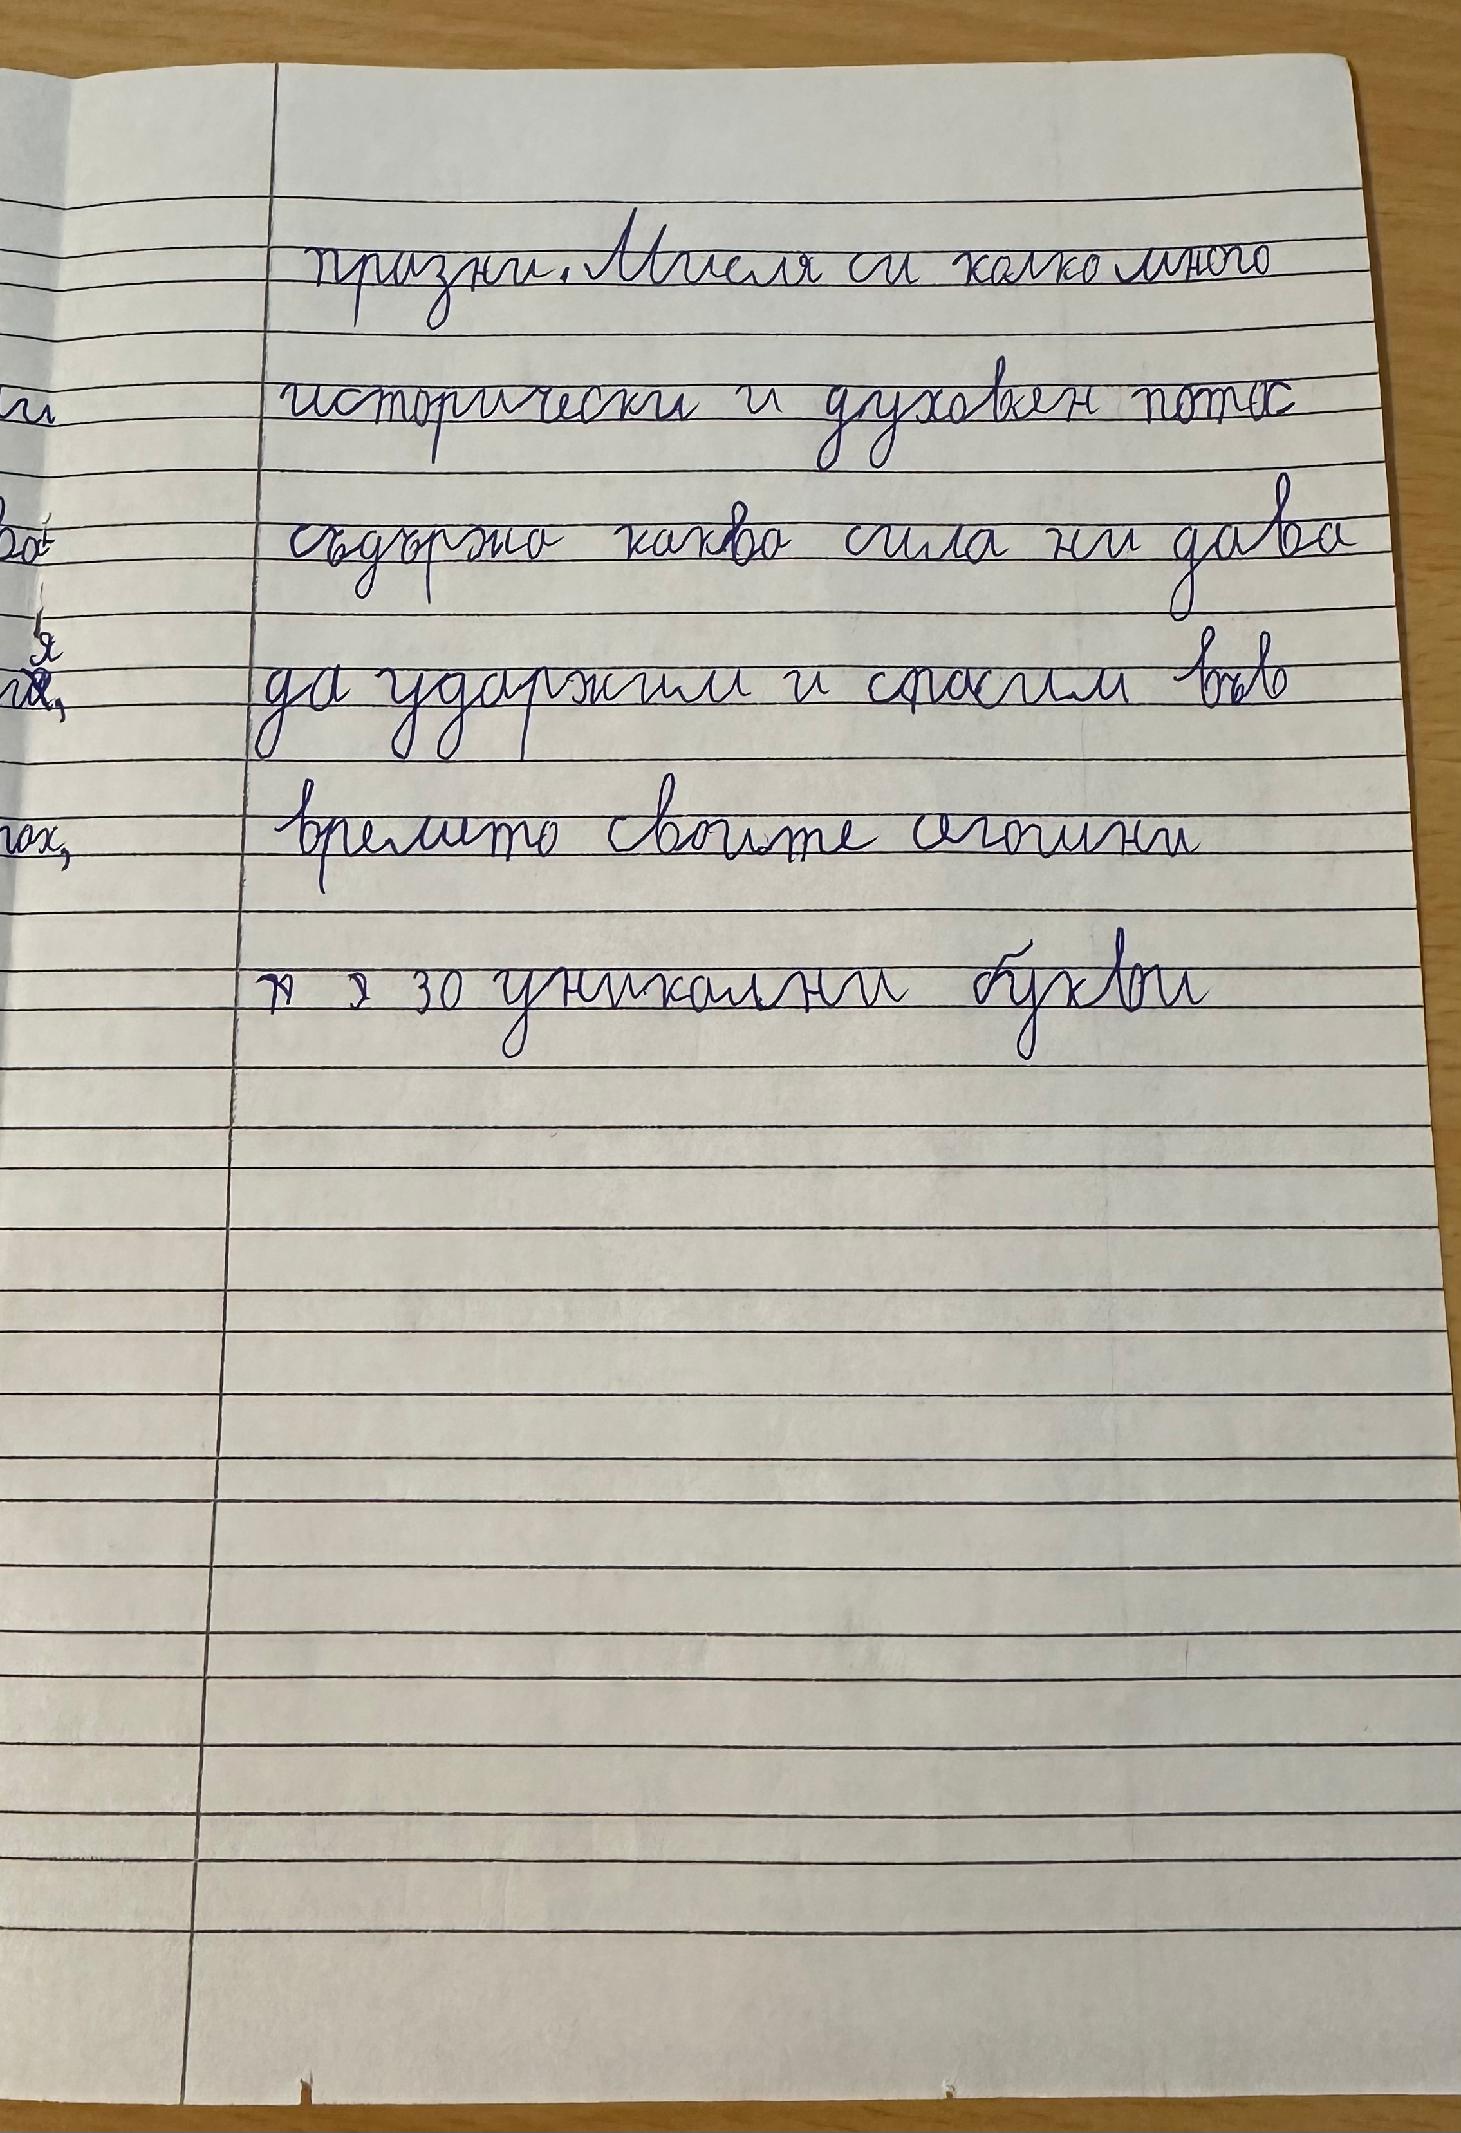 призни. Мисля си колко много
исторически и духовен потос
съдържа каква сила ни дава
да ударжим и спасим във
времето своите
30 уникални букви